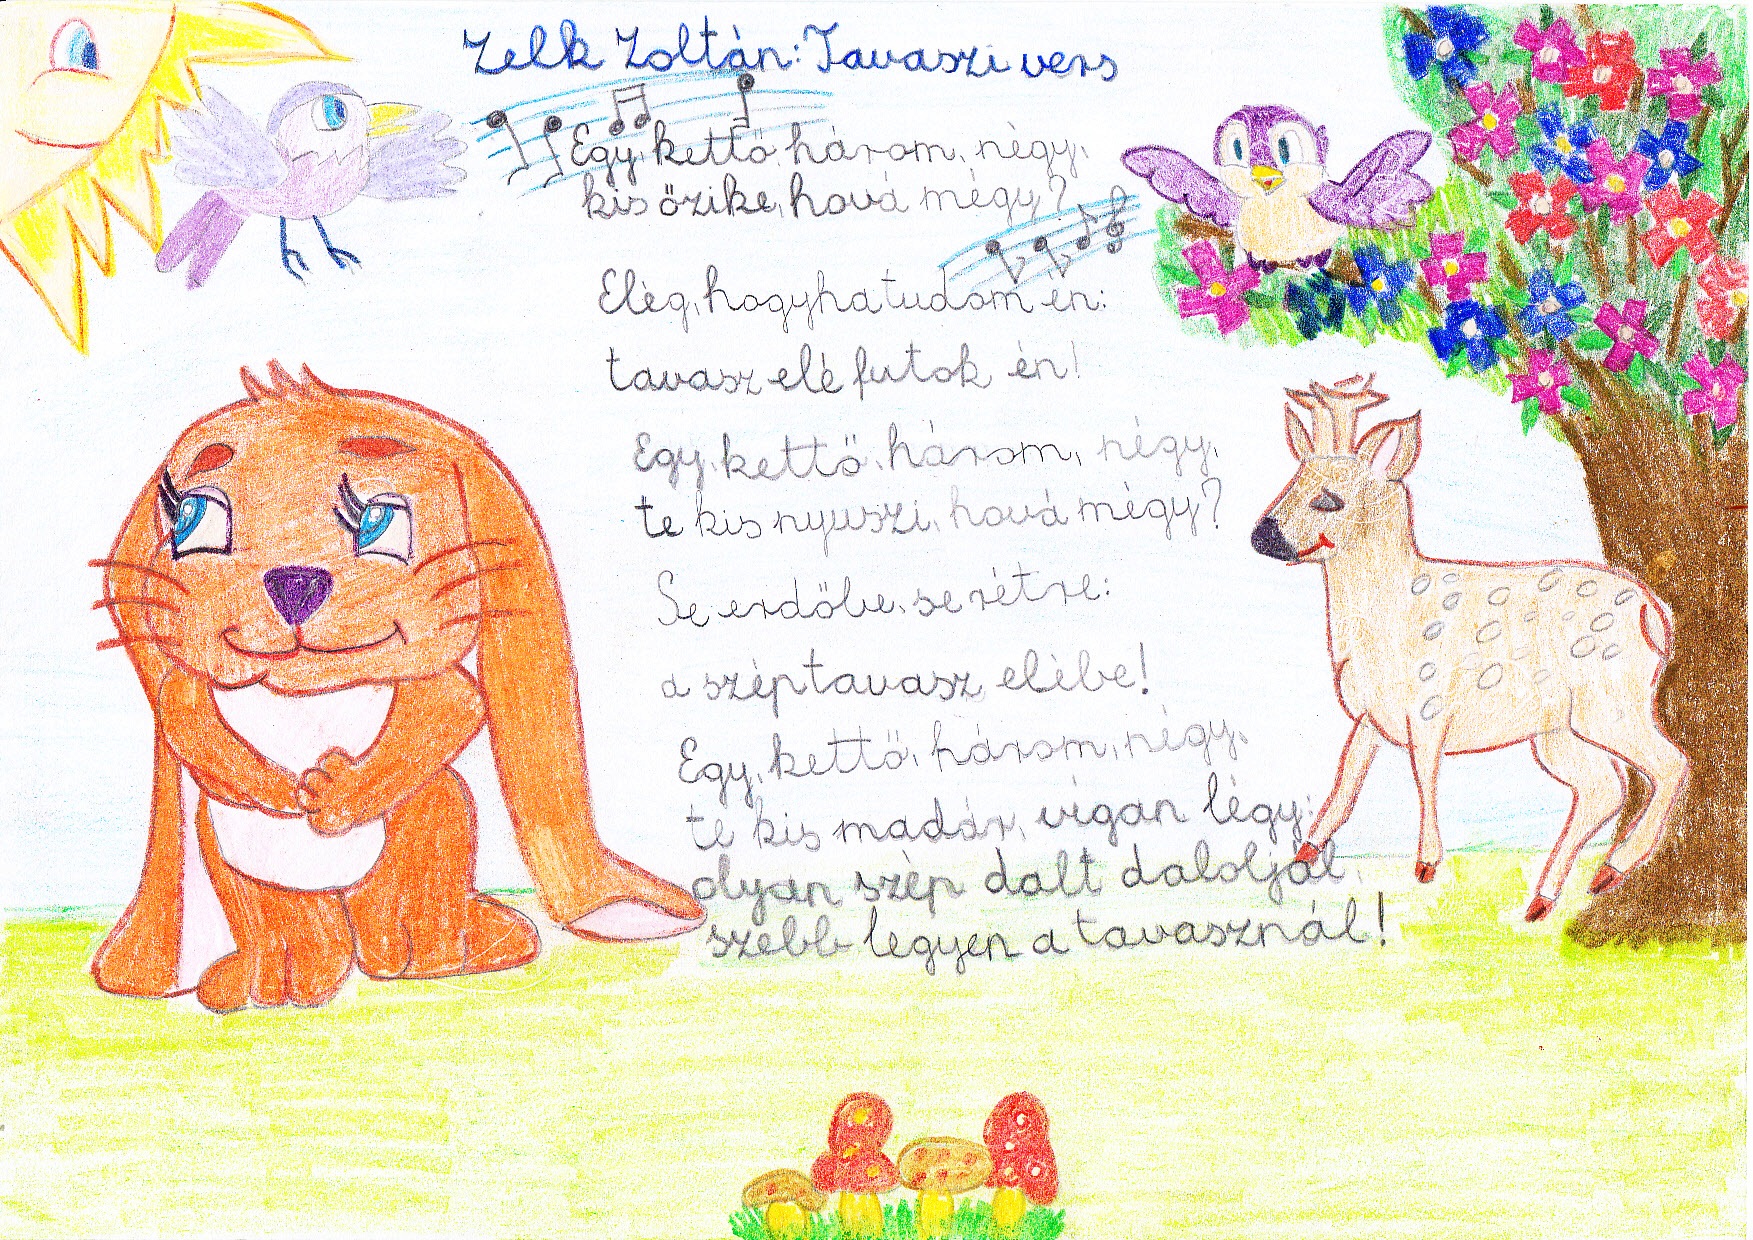 Zelk Zoltán: Tavaszi vers
Egy, kettő, három, négy,
kis őzike, hová mégy?
Elég, hogyha tudom én:
tavasz elé futok én!
Egy, kettő, három, négy,
te kis nyuszi, hová mégy?
Se erdőbe, se rétre:
a szép tavasz elébe!
Egy, kettő, három, négy,
te kis madár, vígan légy:
olyan szép dalt daloljál,
szebb legyen a tavasznál!